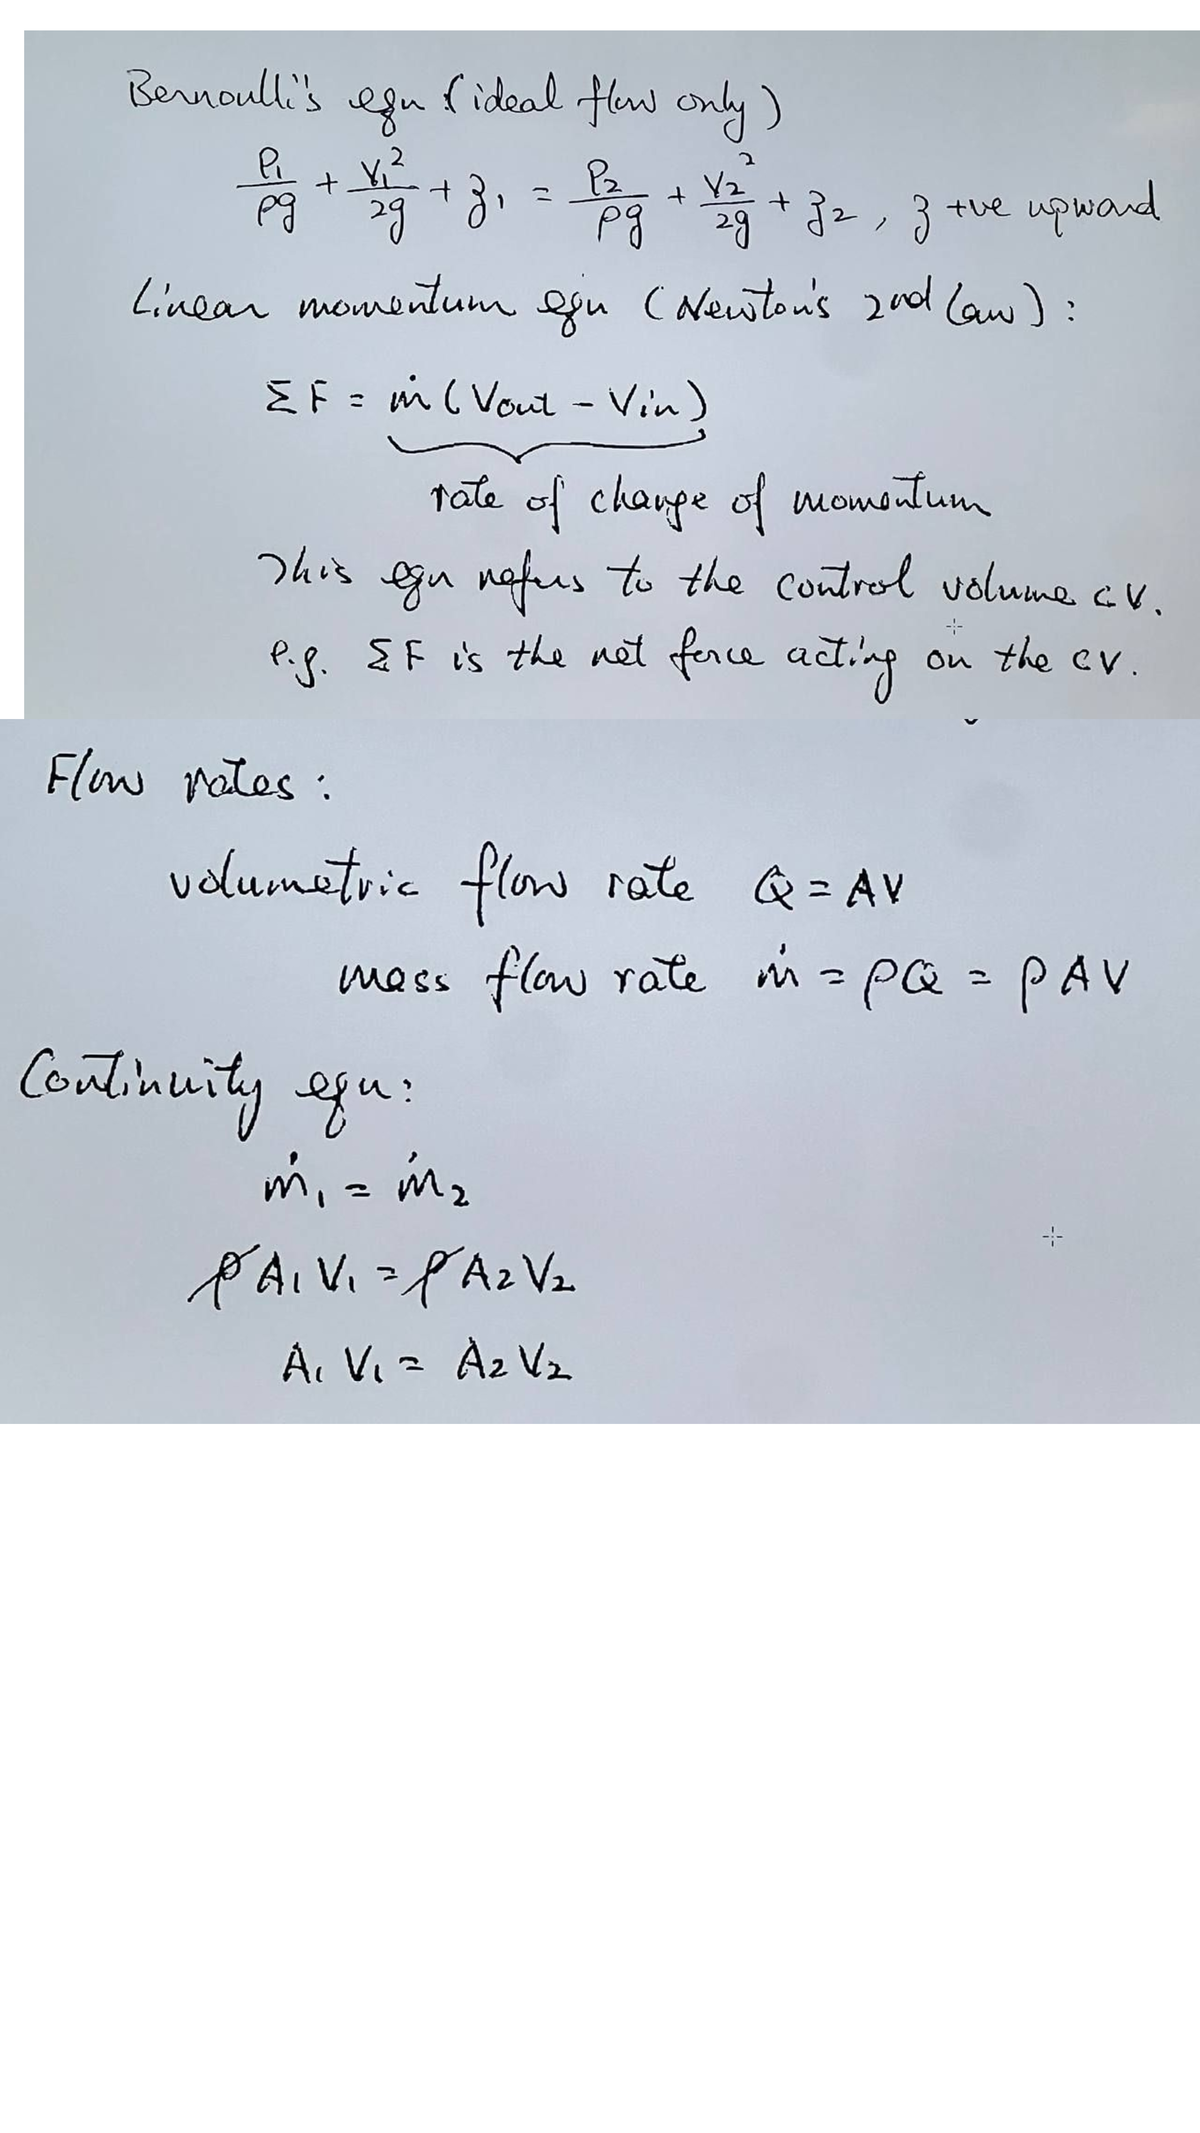 Bernoulli's eqn (ideal flow only)
P₁/ρg + V₁²/2g + z₁ = P₂/ρg + V₂²/2g + z₂, z +ve upward
Linear momentum eqn (Newton's 2nd Law):
ΣF = ṁ(Vout - Vin)
rate of change of momentum
This eqn refers to the control volume CV.
e.g. ΣF is the net force acting on the CV.
Flow rates:
volumetric flow rate Q = AV
mass flow rate ṁ = ρQ = ρAV
Continuity eqn:
ṁ₁ = ṁ₂
ρA₁V₁ = ρA₂V₂
A₁V₁ = A₂V₂